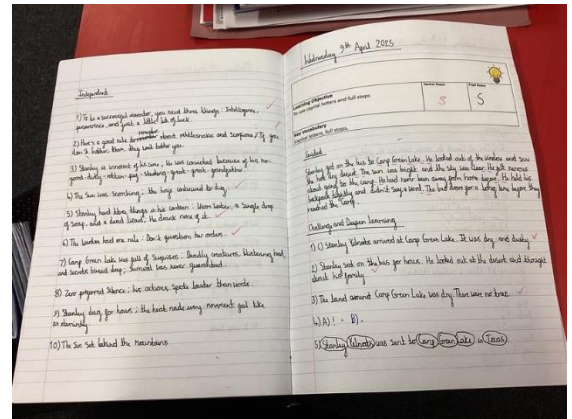 Independent
1) To be a successful inventor, you need three things: Intelligence,
perserverance, and just a little bit of luck.
2) Here's a good rule to remember about rattlesnakes and scorpions: If you
don't bother them, they wont bother you.
3) Stanley is innocent of his crime; he was convicted because of his no-
good-dirty-rotten-pig-stealing-great-great-grandfather.
4) The sun was scorching; the boys continued to dig.
5) Stanley had three things in his canteen: Warm water, a single drop
of soap, and a dead lizard. He drank none of it.
6) The warden had one rule: Don't question her orders.
7) Camp Green Lake was full of surprises. Deadly creatures, blistering heat,
and secrets buried deep; Survival was never guaranteed.
8) Zero prefered Silence; his actions spoke louder than words.
9) Stanley dug for hours; the heat made every movement feel like
an eternity.
10) The Sun Set behind the mountains
Wednesday 9th April 2025
Learning Objective
To use capital letters and full stops.
S S
Key Vocabulary
Capital letters, full stops.
Guided
Stanley sat on the bus to Camp Green Lake. He looked out of the window and saw
the hot dry desert. The sun was bright and the sky was clear. He felt nervous
about going to the camp. He had never been away from home before. He held his
backpack tightly and didn't say a word. The bus drove for a long time before they
reached the camp.
Challenge and Deepen Learning
1) C) Stanley Yelnats arrived at Camp Green Lake. It was dry, and dusty.
2) Stanley sat on the bus for hours. He looked out at the desert and thought
about his family.
3) The land around Camp Green Lake was dry. There were no trees.
4) A) ! - B) .
5) Stanley Yelnats was sent to Camp Green Lake in Texas